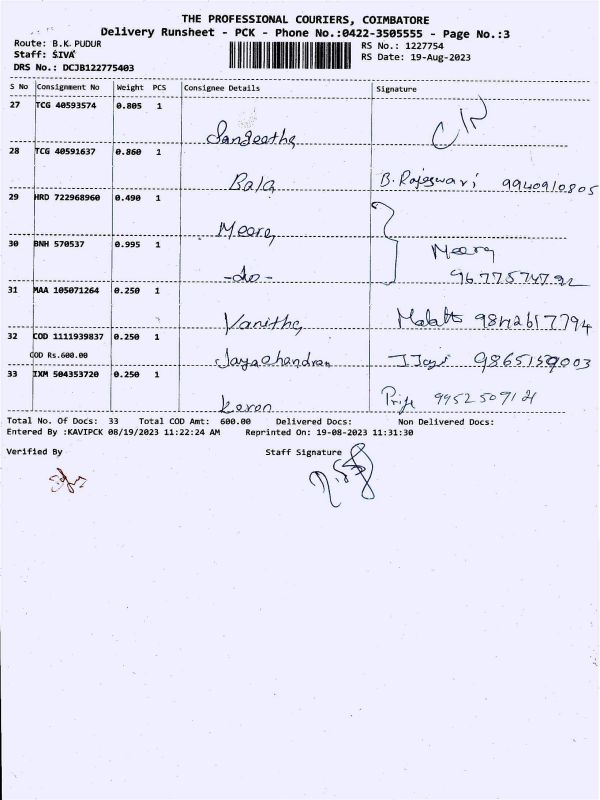 THE PROFESSIONAL COURIERS, COIMBATORE
Delivery Runsheet - PCK - Phone No.:0422-3505555 - Page No.:3
Route: B.K. PUDUR
RS No.: 1227754
Staff: SIVA
RS Date: 19-Aug-2023
DRS No.: DCJB122775403
S No Consignment No Weight PCS Consignee Details Signature
27 TCG 40593574 0.805 1
Sangeetha
28 TCG 40591637 0.860 1
Bala B. Rajeswari 9940910805
29 HRD 722968960 0.490 1
Meera
30 BNH 570537 0.995 1 Meera
-do- 9677574792
31 MAA 105071264 0.250 1
Vanitha 9842617794
32 COD 1111939837 0.250 1
COD Rs.600.00 Jayachandran 9865159003
33 IXM 504353720 0.250 1
Total No. Of Docs: 33 Total COD Amt: 600.00 Delivered Docs: Non Delivered Docs:
Entered By :KAVIPCK 08/19/2023 11:22:24 AM Reprinted On: 19-08-2023 11:31:30
Verified By Staff Signature